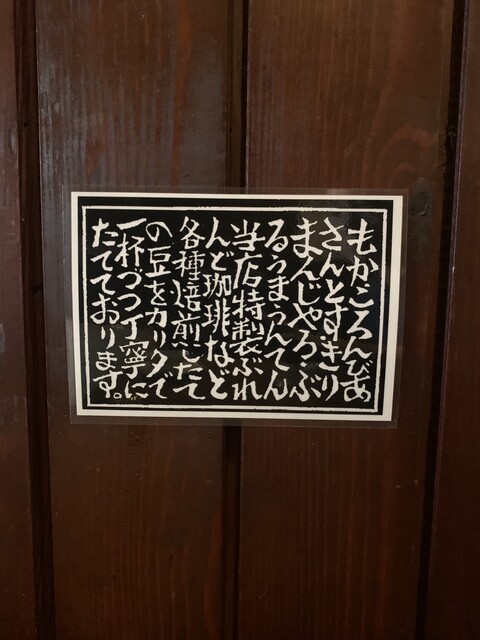 もかころんびあ
さんとすきり
まんじやろぶ
るうまうんてん
当店特製ぶれ
んど珈琲など
各種焙煎したて
の豆をカリタで
一杯づつ丁寧に
たてております。